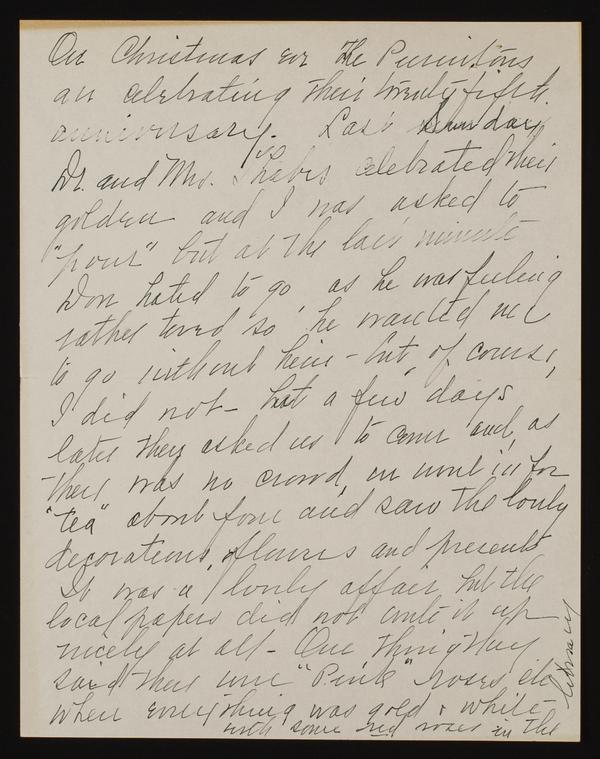 On Christmas eve the Purintons
are celebrating their twenty fifth
anniversary. Last Sunday
Dr. and Mrs. celebrated their
golden and I was asked to
"pour" but at the last minute
Don hated to go, as he was feeling
rather tired so he wanted me
to go without him - but, of course,
I did not - but a few days
later they asked us to come and, as
there was no crowd, we went in for
"tea" about four and saw the lovely
decorations, flowers and presents
It was a lovely affair but the
local papers did not write it up
nicely at all - One thing they
said there were "Pink" roses etc
when everything was gold & white
with some red roses in the
library